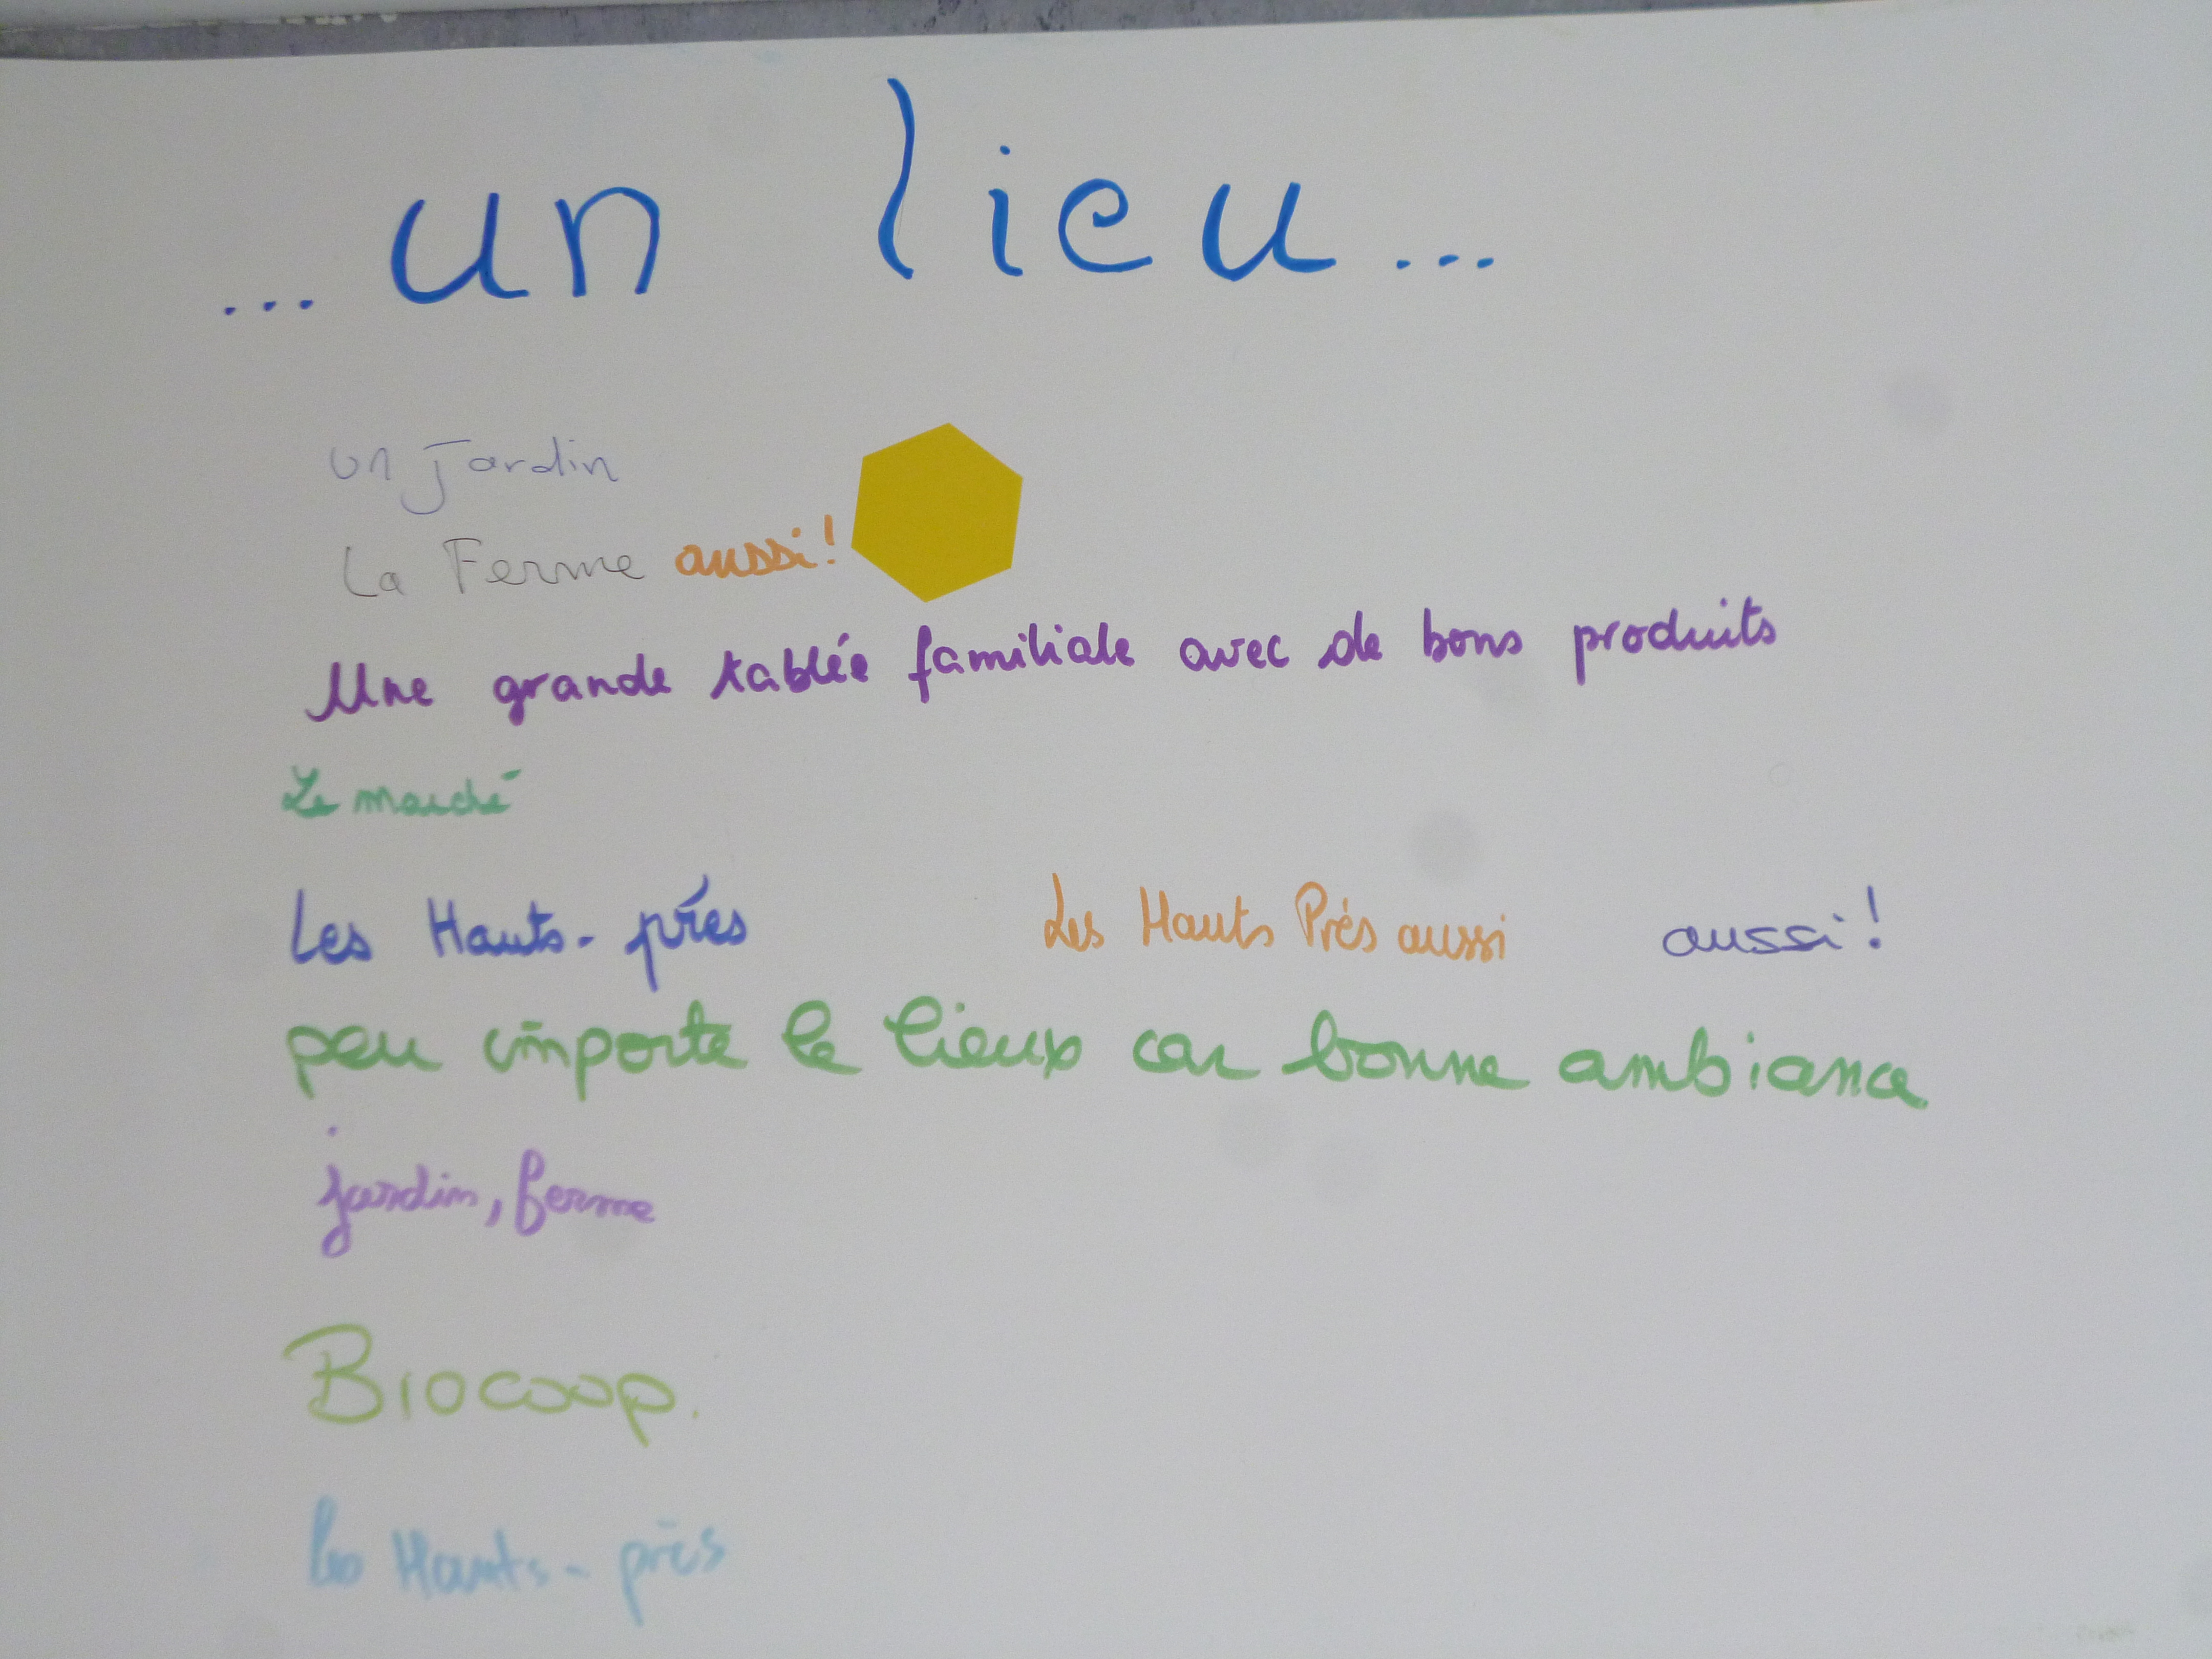 ... un lieu ...
un jardin
La Ferme aussi!
Une grande tablée familiale avec de bons produits
Le marché
Les Hauts-prés Les Hauts Prés aussi aussi!
peu importe le lieux car bonne ambiance
jardin, ferme
Biocoop.
les Hauts-prés